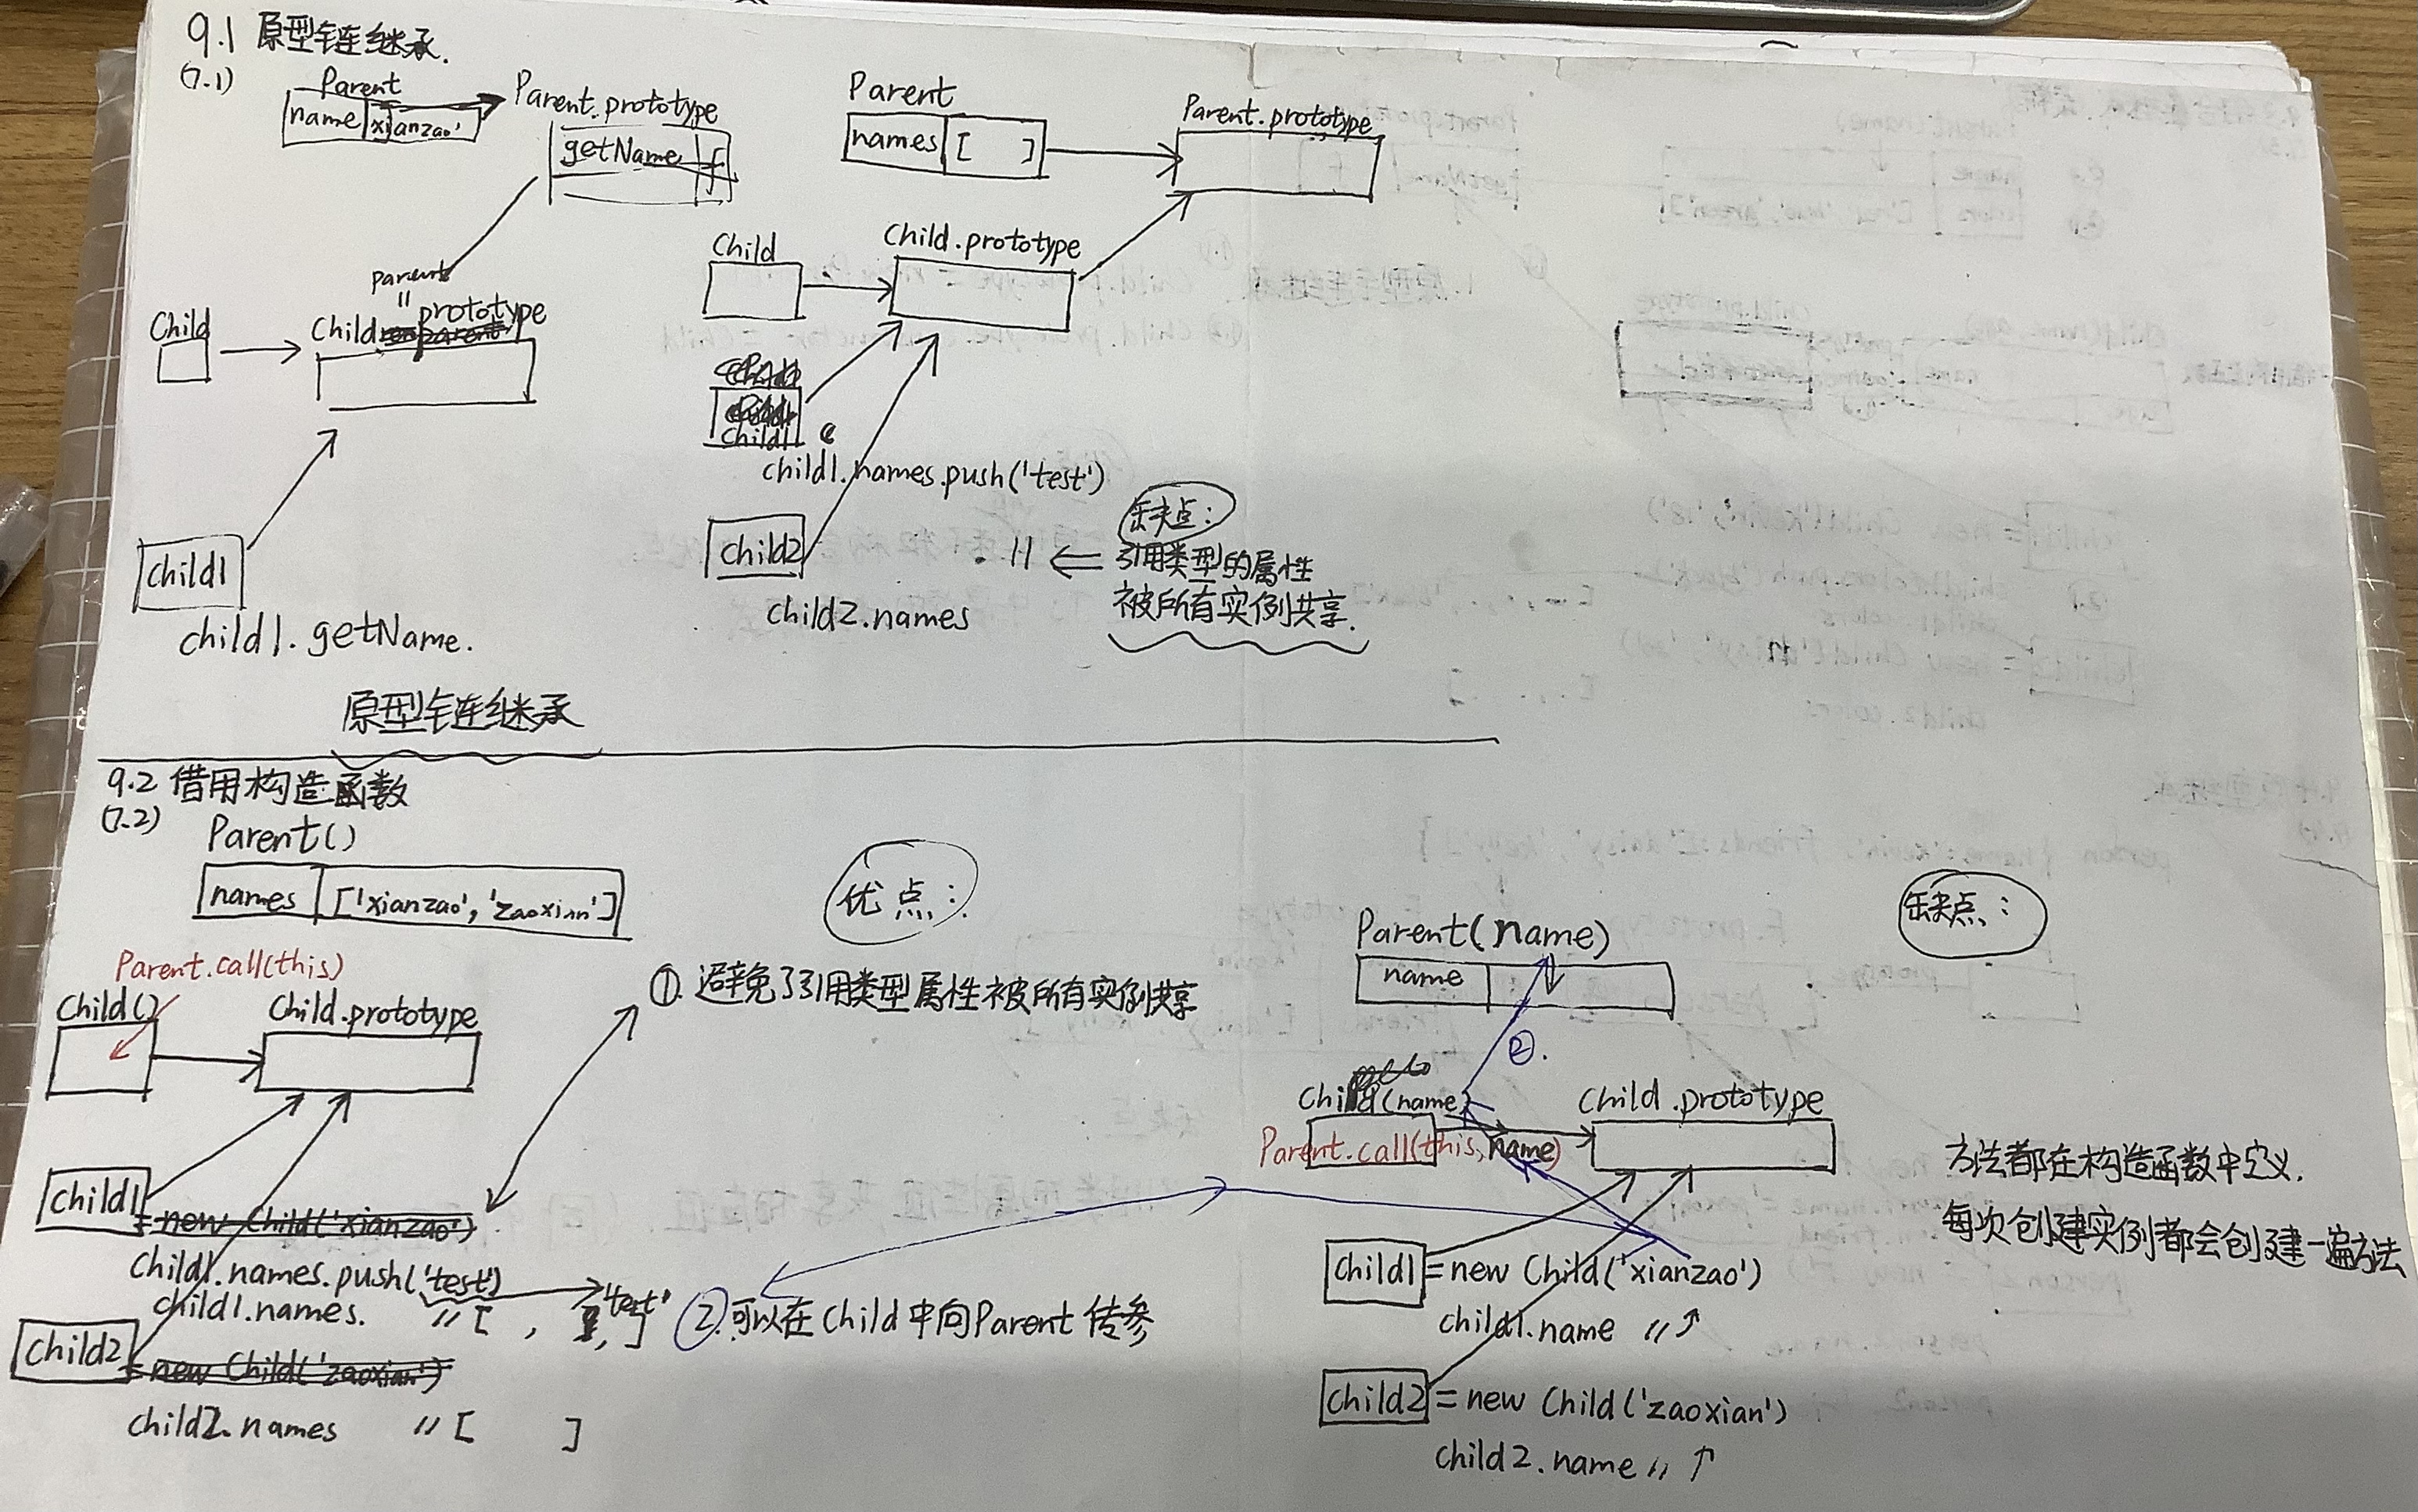 9.1 原型链继承.
(7.1)
Parent
name xianzao'
Parent.prototype
getName f
parent
"
Child prototype
Child
child1
child1.getName.
Parent
names [ ]
Parent.prototype
Child
Child.prototype
child1
child1.names.push('test')
child2
child2.names
缺点:
引用类型的属性
被所有实例共享.
原型链继承
9.2 借用构造函数
(7.2)
Parent()
names ['xianzao', 'zaoxian']
Parent.call(this)
Child()
Child.prototype
child1 = new Child('xianzao')
child1.names.push('test')
child1.names. // [ , , 'test' ]
child2 = new Child('zaoxian')
child2.names // [ ]
优点:
①. 避免了引用类型属性被所有实例共享
②.可以在Child中向Parent传参
缺点:
Parent(name)
name
②.
Child(name)
Child.prototype
Parent.call(this, name)
child1 = new Child('xianzao')
child1.name // ↑
child2 = new Child('zaoxian')
child2.name // ↑
方法都在构造函数中定义.
每次创建实例都会创建一遍方法